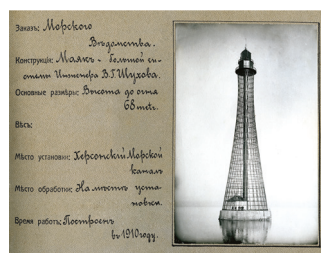 Заказъ: Морского
Вѣдомства.
Конструкція: Маякъ - башней си-
стемы Инженера В. Г. Шухова.
Основные размѣры: Высота до огня
68 mets.
Вѣсъ:
Мѣсто установки: Херсонскій Морской
каналъ
Мѣсто обработки: На мѣстѣ уста-
новки.
Время работъ: Построенъ
въ 1910 году.